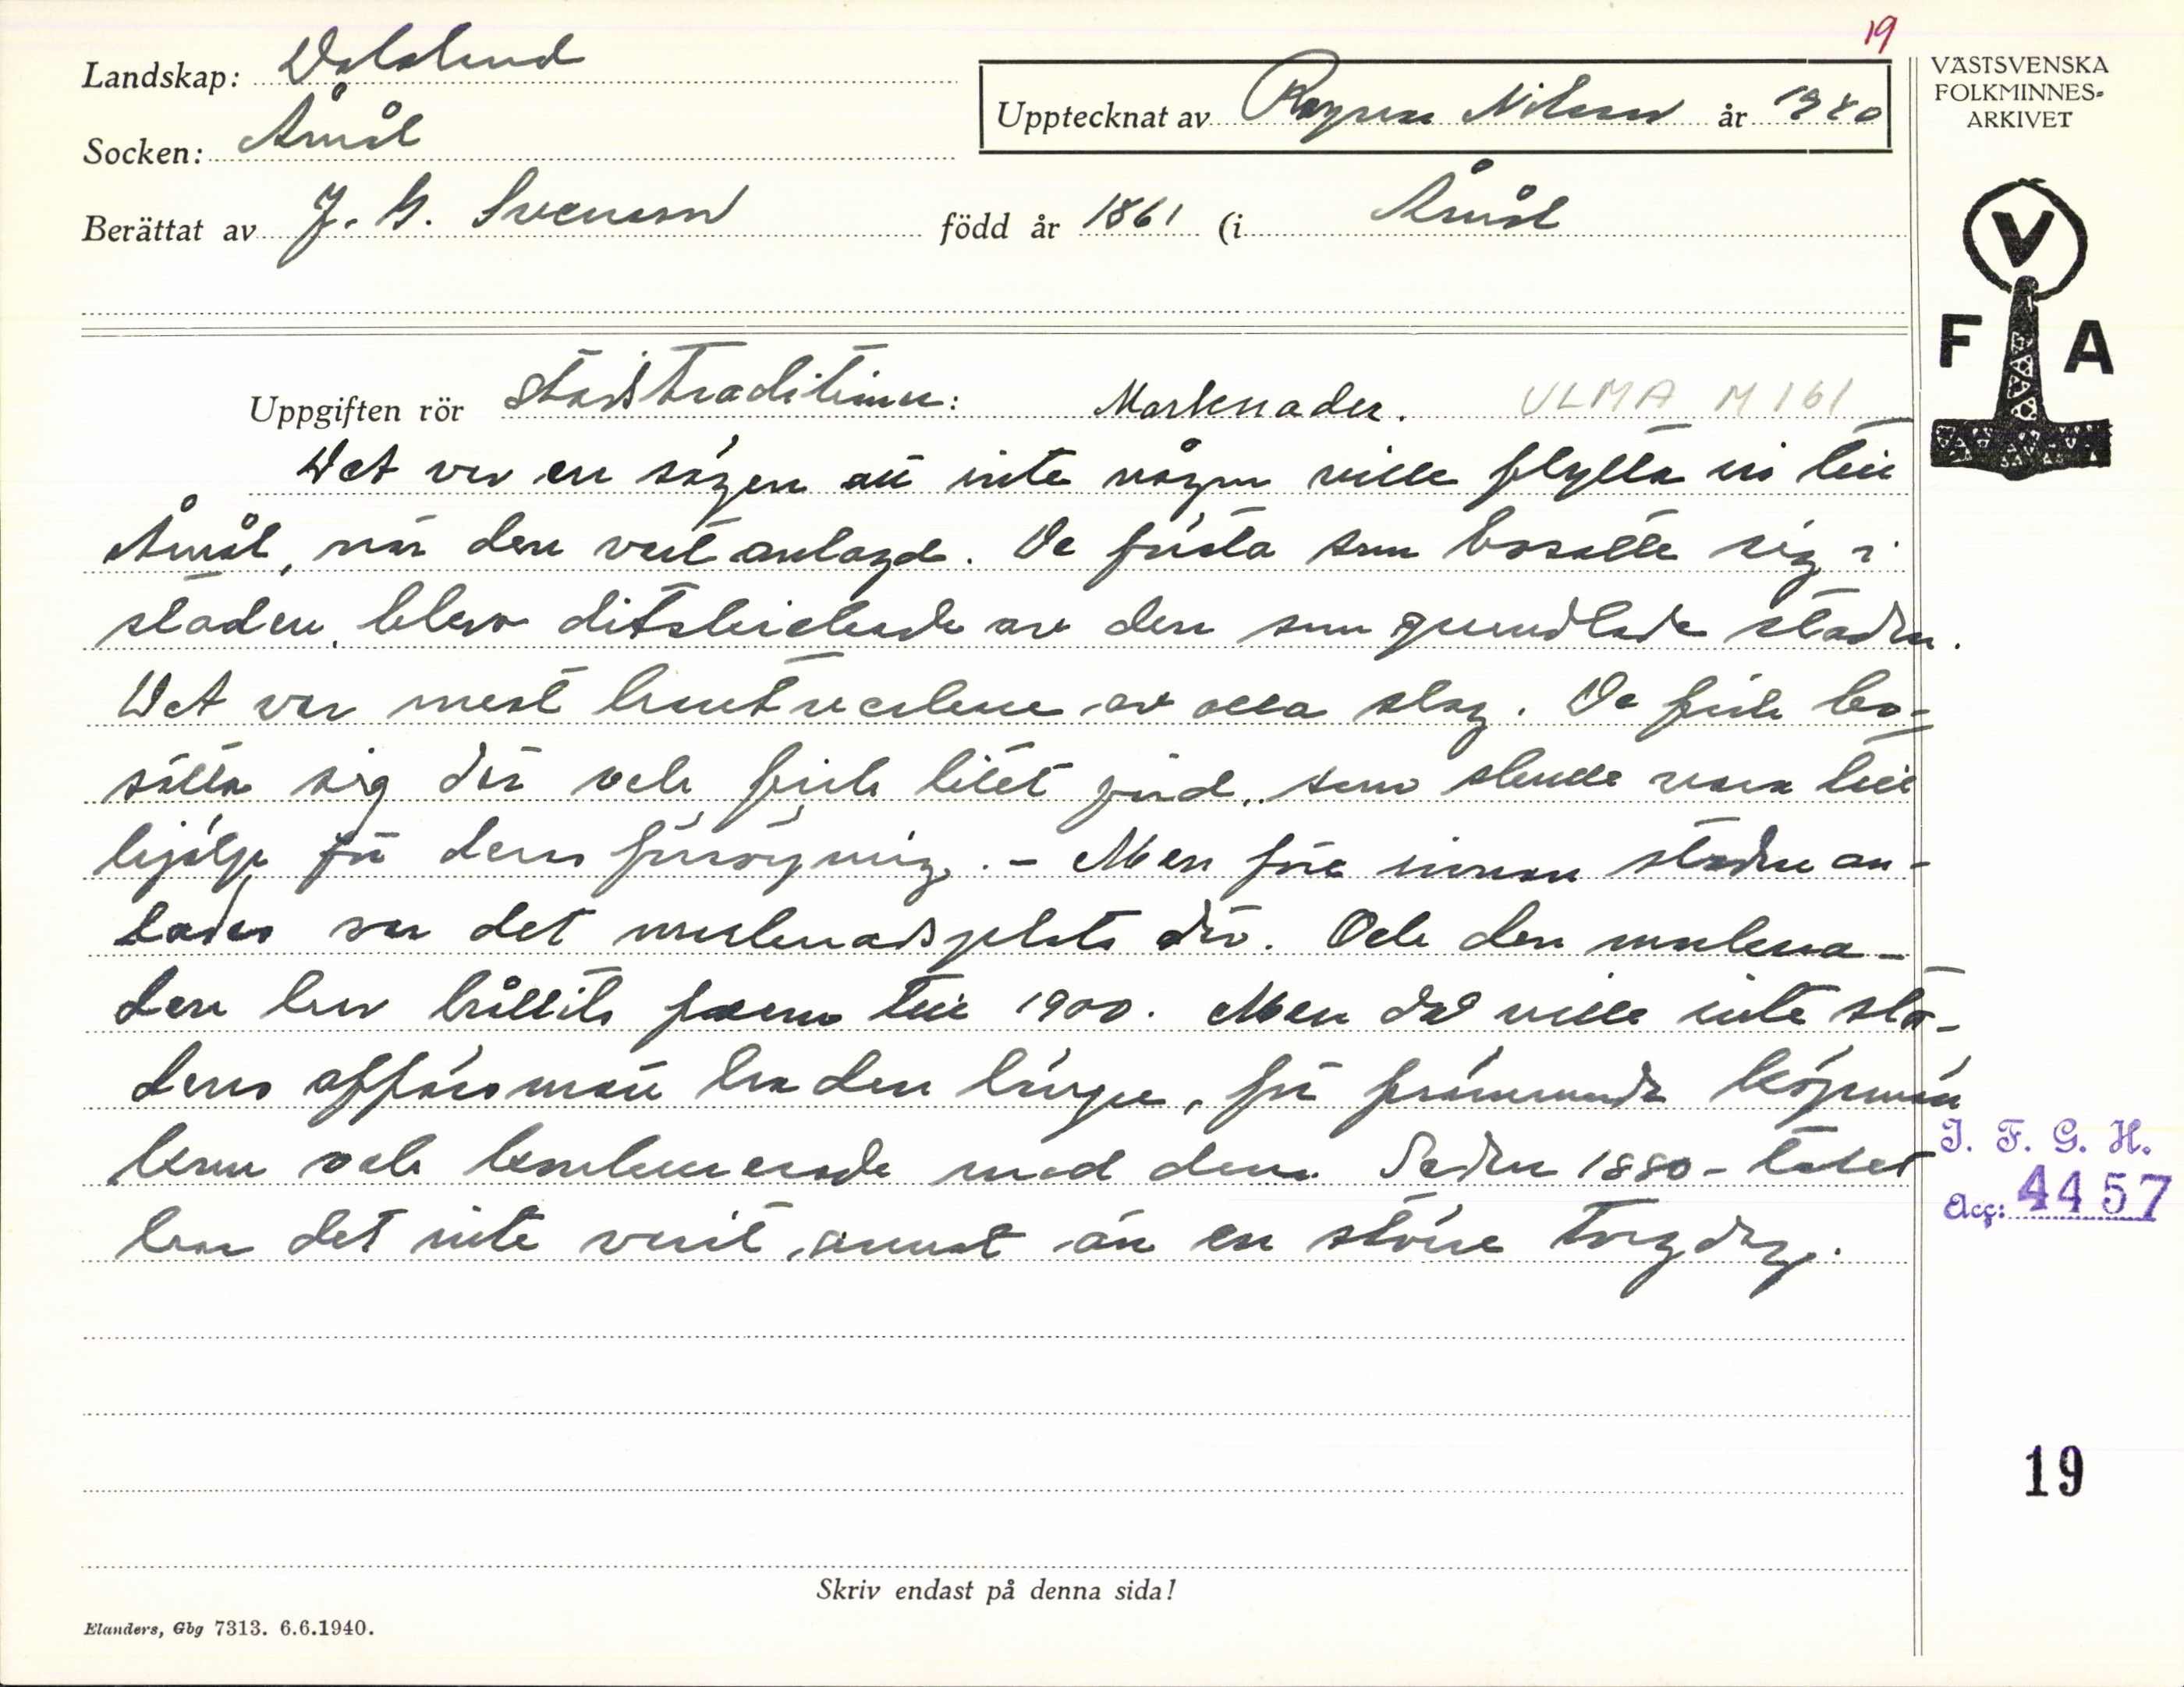 19
Landskap: Dalsland
Upptecknat av Ragnar Nilsson år 1940
VÄSTSVENSKA
FOLKMINNES-
ARKIVET
Socken: Åmål
Berättat av J. G. Svensson född år 1861 (i Åmål
V
F A
Uppgiften rör Stadstraditioner: Marknader. ULMA M 161
Det var en sägen att inte någon ville flytta in till
Åmål, när den vart anlagd. De första som bosatte sig i
staden, blev ditskickade av den som grundlade staden.
Det var mest hantverkare av alla slag. De fick bo-
sätta sig där och fick litet jord, som skulle vara till
hjälp för deras försörjning. - Men före innan staden an-
lades var det marknadsplats där. Och den markna-
den har hållits fram till 1900. Men då ville inte sta-
dens affärsmän ha den längre, för främmande köpmän
kom och konkurrerade med dem. Sedan 1880-talet
har det inte varit annat än en större torgdag.
I. F. G. H.
Acc: 4457
19
Skriv endast på denna sida!
Elanders, Gbg 7313. 6.6.1940.